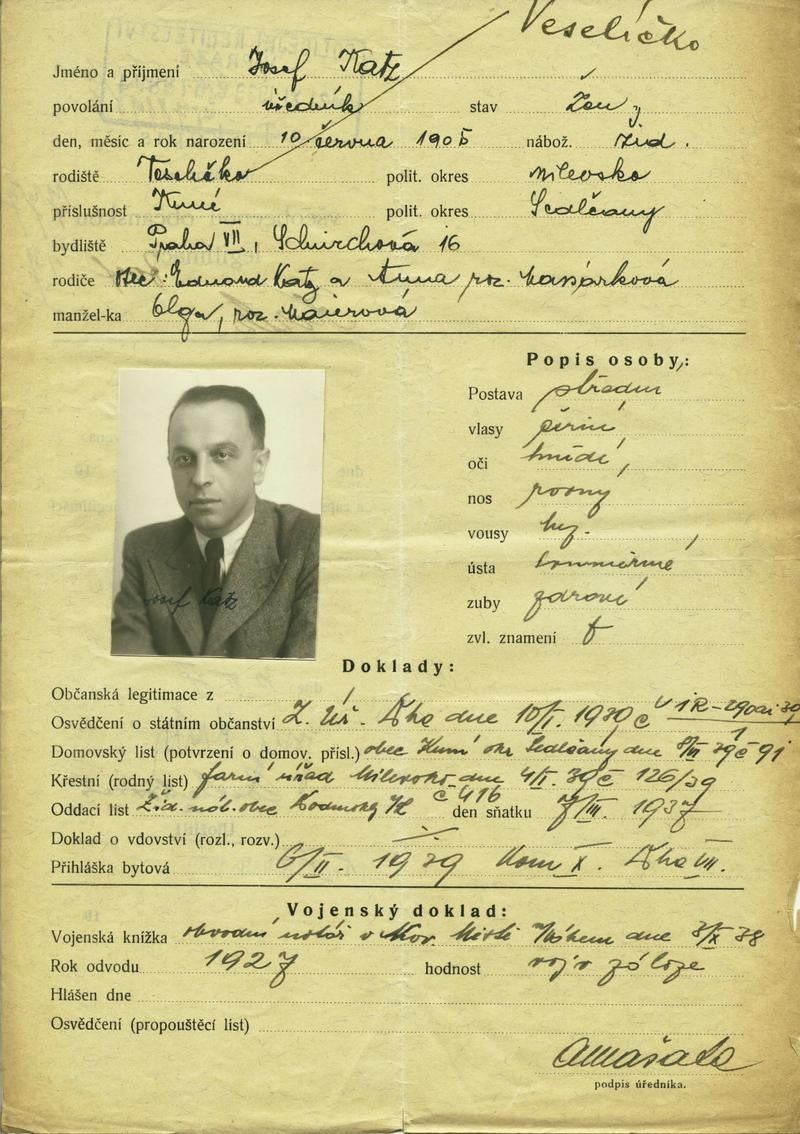 Veselíčko
Jméno a příjmení Josef Katz
povolání úředník stav žen.
den, měsíc a rok narození 10 června 1905 nábož. žid.
rodiště polit. okres Milevsko
příslušnost polit. okres Sedlčany
bydliště Praha VII, 16
rodiče Otec: Eduard Katz a Anna roz.
manžel-ka Olga, roz. Maierová
Popis osoby:
Postava střední
vlasy černé
oči hnědé
nos rovný
vousy hol.
ústa souměrné
zuby zdravé
zvl. znamení
Josef Katz
Doklady:
Občanská legitimace z /
Osvědčení o státním občanství Z. Úř. Pha dne 10/I. 1939 č
Domovský list (potvrzení o domov. přísl.) obec okr Sedlčany dne 8/III 39 č 91
Křestní (rodný list) farní úřad Milevsko dne 4/I. 39 č 126/39
Oddací list Žid. náb. obec č 416 den sňatku 7/III. 1937
Doklad o vdovství (rozl., rozv.)
Přihláška bytová 6/II. 1939 Kom X. Pha VII.
Vojenský doklad:
Vojenská knížka obvodní dne 3/X 38
Rok odvodu 1927 hodnost voj v záloze
Hlášen dne
Osvědčení (propouštěcí list)
podpis úředníka.